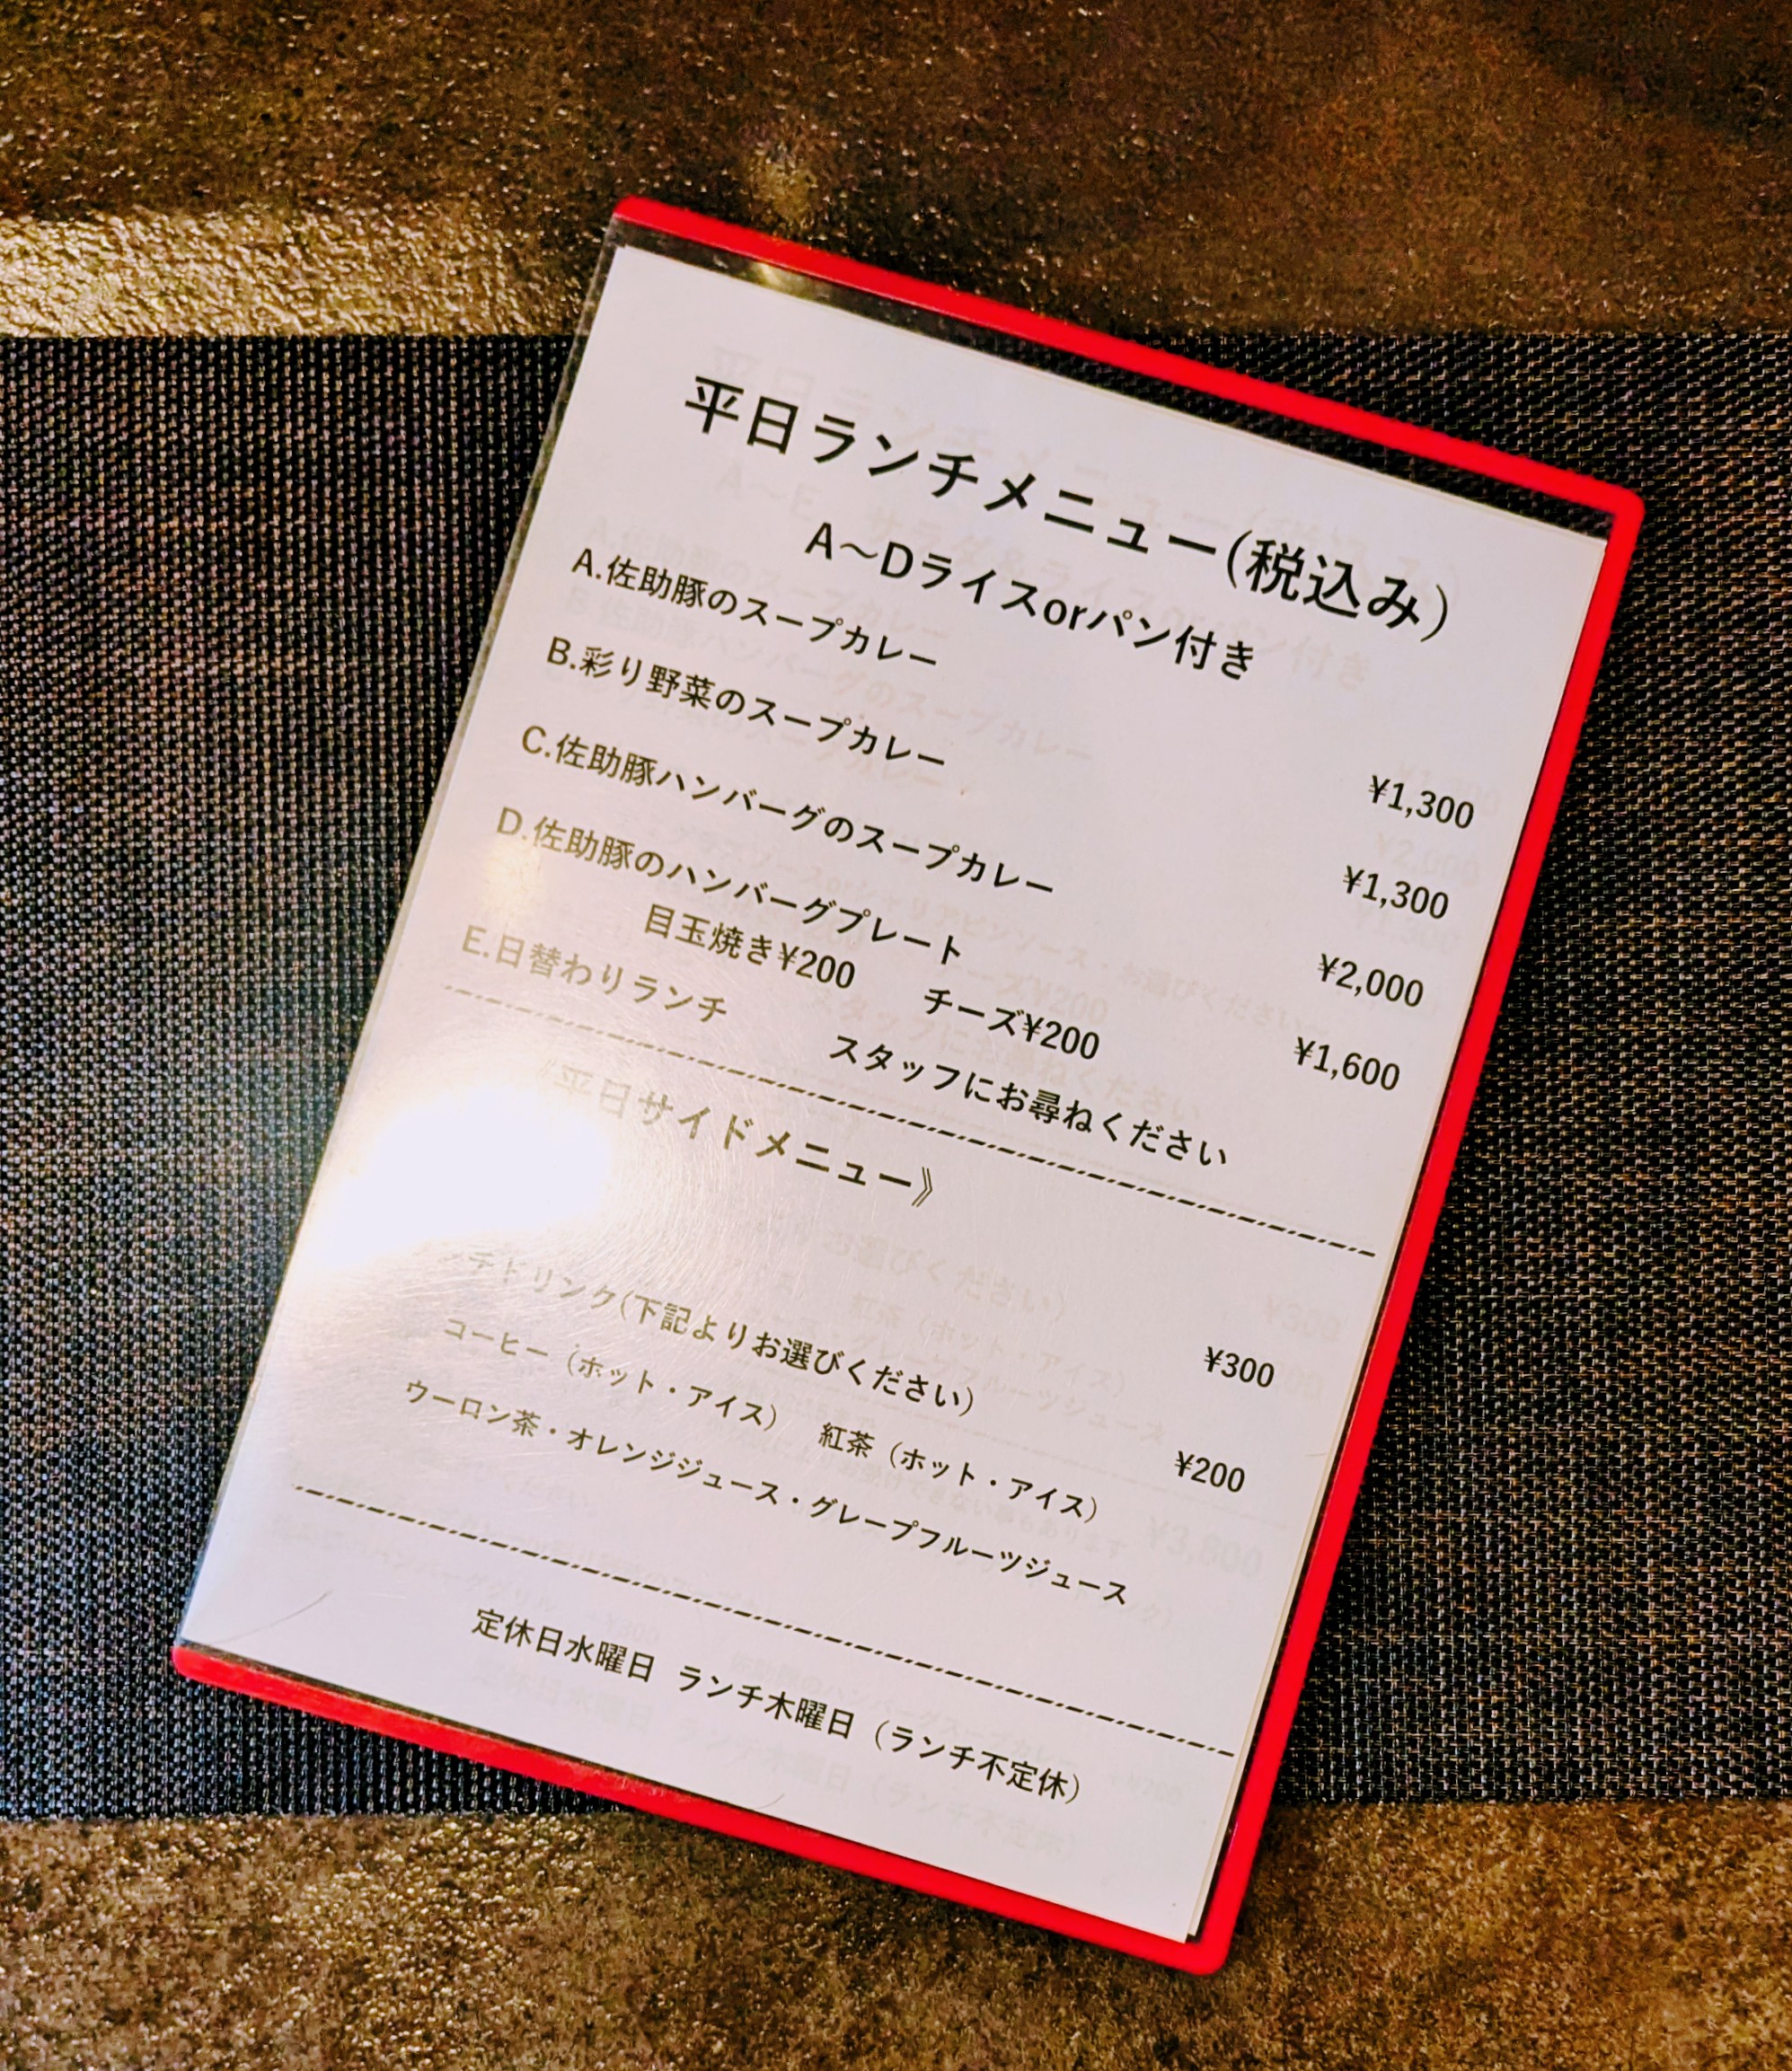 平日ランチメニュー(税込み)
A～Dライスorパン付き
A.佐助豚のスープカレー ¥1,300
B.彩り野菜のスープカレー ¥1,300
C.佐助豚ハンバーグのスープカレー ¥2,000
D.佐助豚のハンバーグプレート ¥1,600
目玉焼き¥200 チーズ¥200
E.日替わりランチ スタッフにお尋ねください
《平日サイドメニュー》
¥300
チドリンク(下記よりお選びください) ¥200
コーヒー（ホット・アイス） 紅茶（ホット・アイス）
ウーロン茶・オレンジジュース・グレープフルーツジュース
定休日水曜日 ランチ木曜日（ランチ不定休）